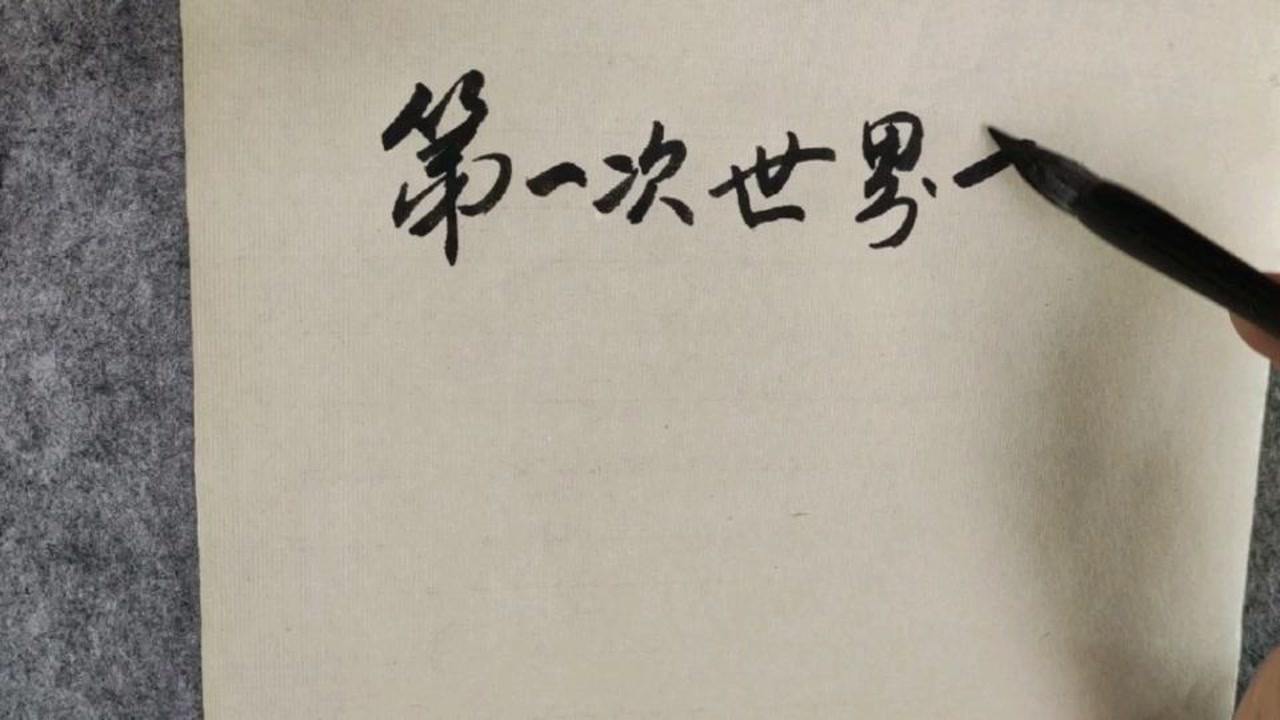 第一次世界一